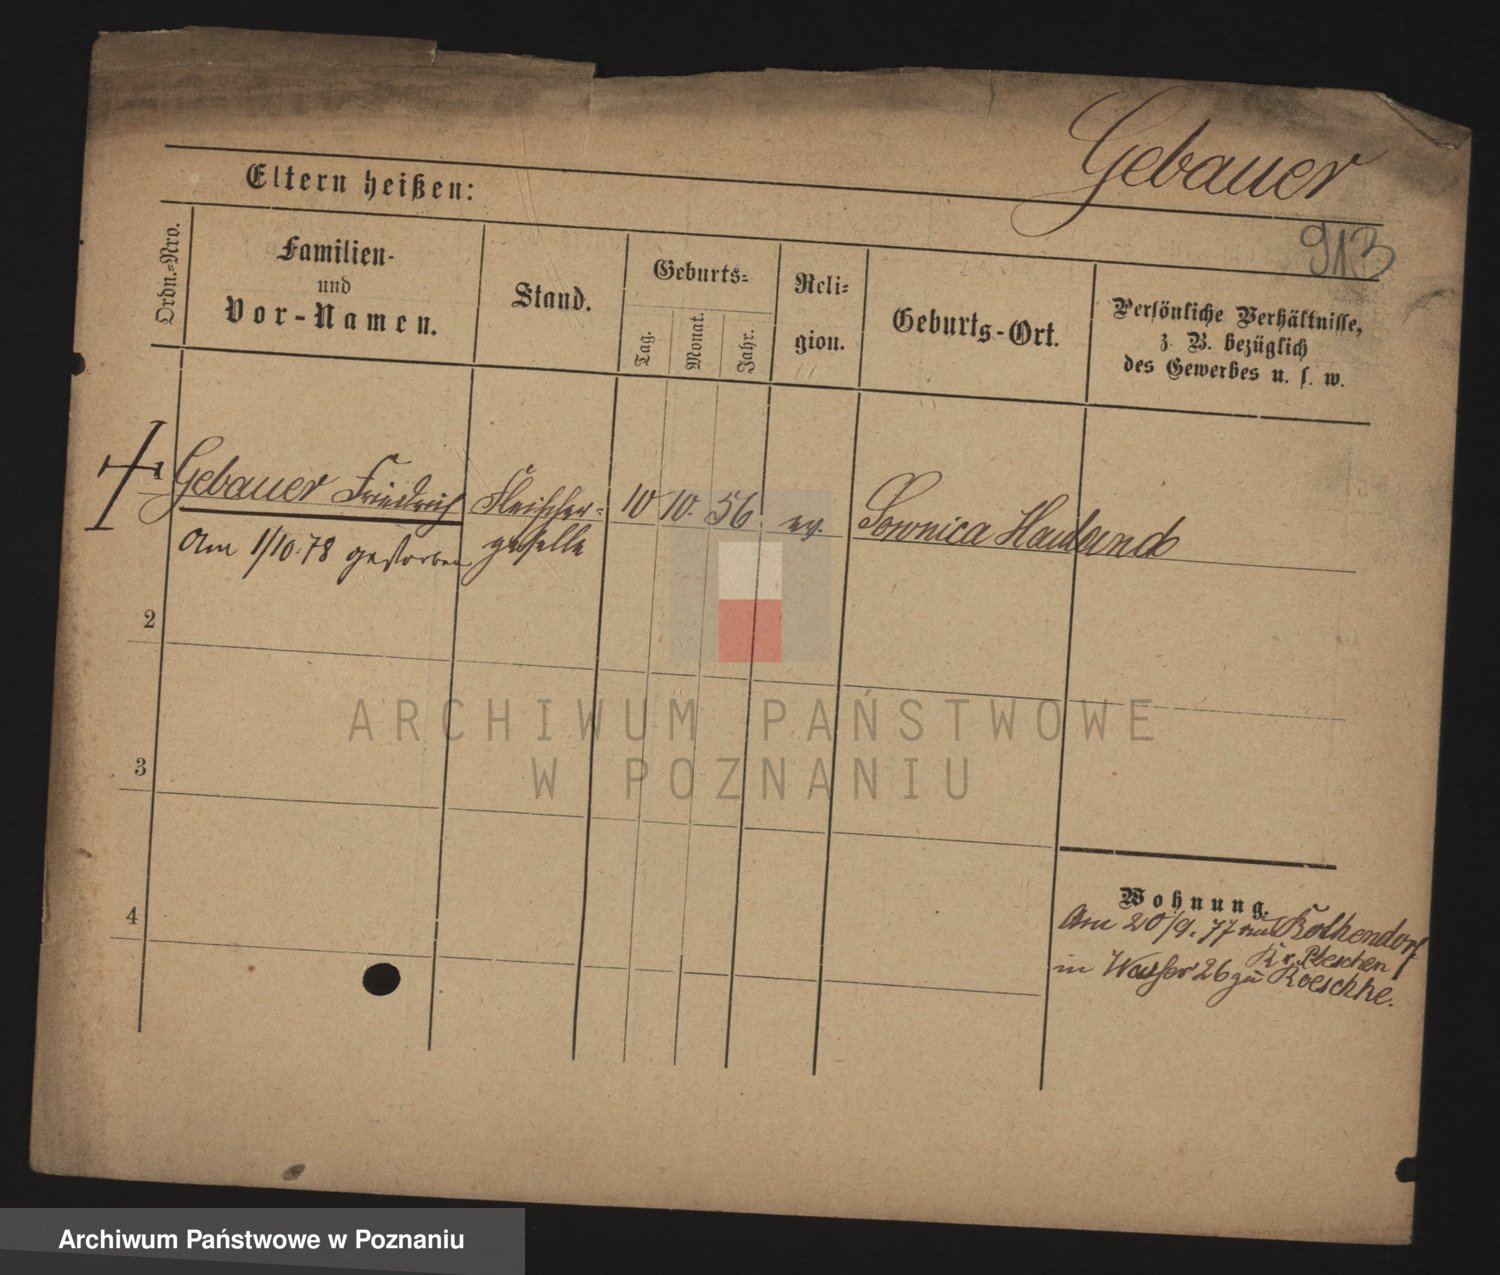 Gebauer
Eltern heißen:
913
Ordn.=Nro.
Familien-
und
Vor-Namen.
Stand.
Geburts=
Tag.
Monat.
Jahr.
Reli=
gion.
Geburts-Ort.
Persönliche Verhältnisse,
z. B. bezüglich
des Gewerbes u. s. w.
1 Gebauer Friedrich Fleischer= 10 10. 56 ev. Sownica Hauland
Am 1/10.78 gestorben geselle
2
3
4
ARCHIWUM PAŃSTWOWE
W POZNANIU
Wohnung.
Am 20/9. 77 aus Rothendorf
Kr. Pleschen
in Wasser 26 zu Roeschke.
Archiwum Państwowe w Poznaniu